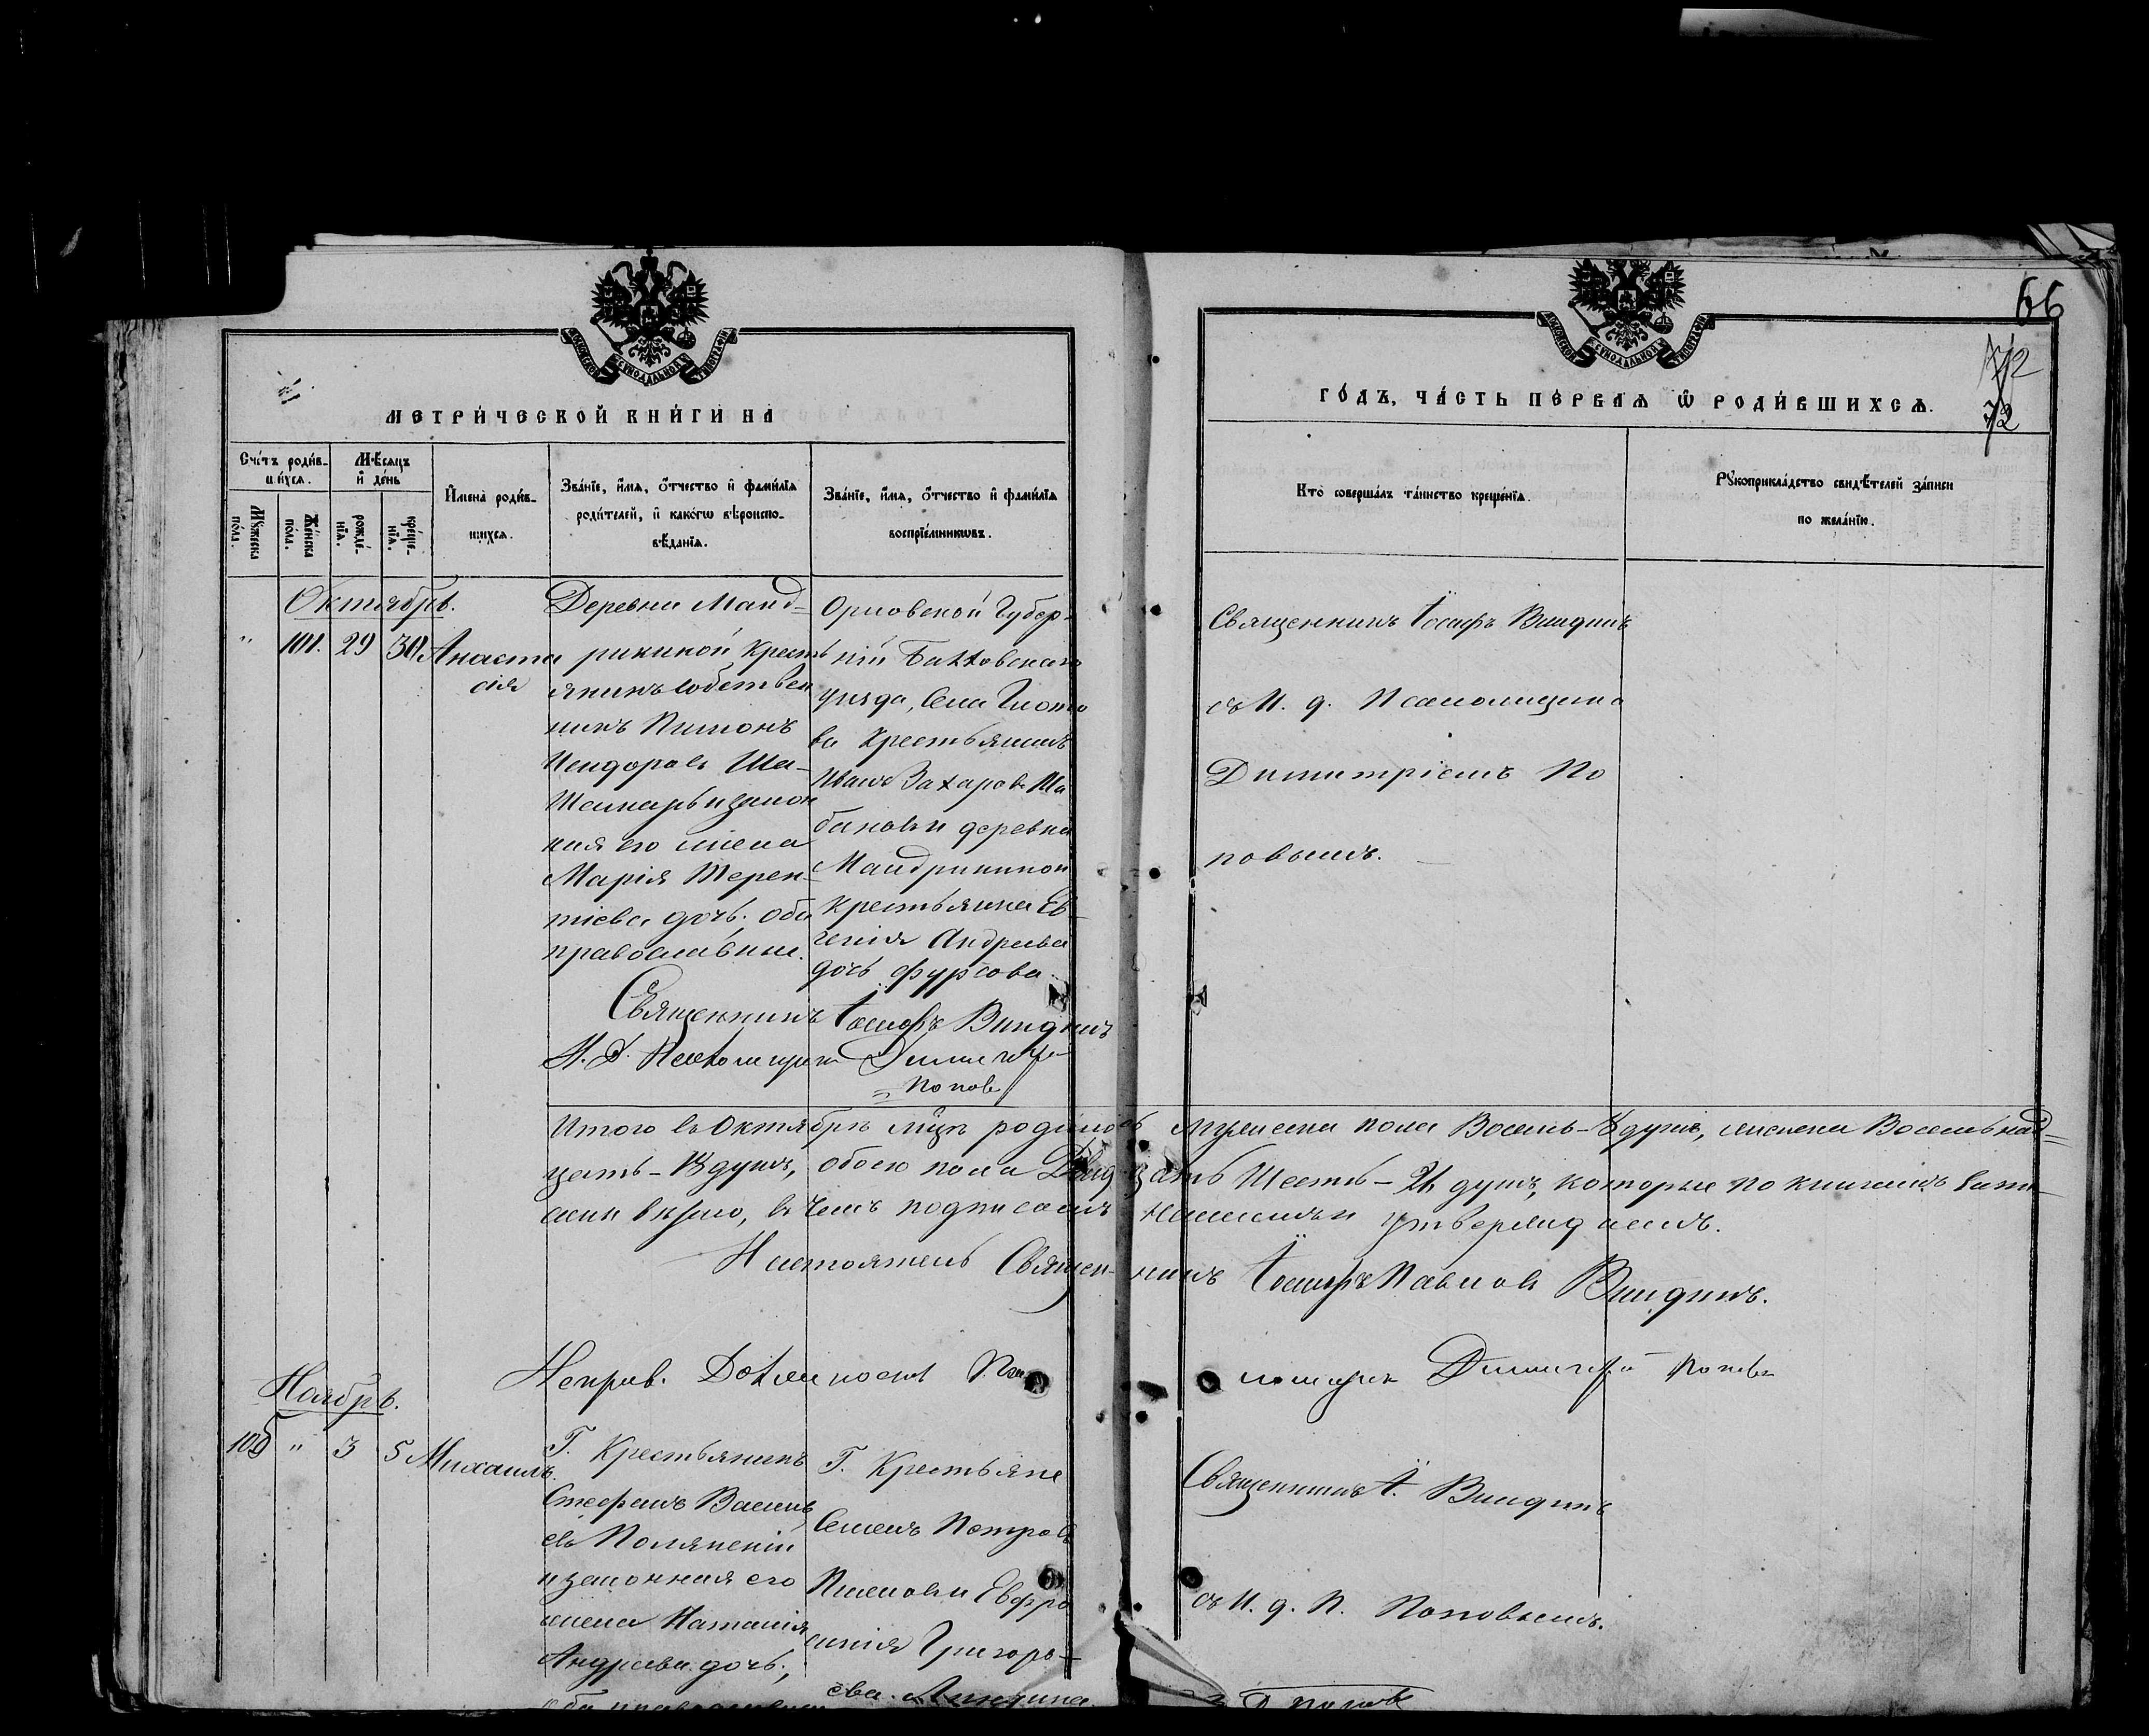 66
72
72
МОСКОВСКОЙ СѴНОДАЛЬНОЙ ТИПОГРАФІИ
МОСКОВСКОЙ СѴНОДАЛЬНОЙ ТИПОГРАФІИ
МЕТРИ́ЧЕСКОЙ КНИ́ГИ НА
ГО́ДЪ, ЧА́СТЬ ПЕ́РВАѦ Ѿ РОДИ́ВШИХСѦ.
Сче́тъ роди́в-
шихсѧ.
Мѣ́сѧцъ
и҆ де́нь
Мꙋ́жеска
по́ла.
Же́нска
по́ла.
рожде́-
нїѧ.
креще́-
нїѧ.
И҆мена̀ роди́в-
шихсѧ.
Зва́нїе, и҆́мѧ, ѻ҆́тчество и҆ фами́лїѧ
роди́телей, и҆ како́гѡ вѣроиспо-
вѣ́данїѧ.
Зва́нїе, и҆́мѧ, ѻ҆́тчество и҆ фами́лїѧ
воспрїе́мникѡвъ.
Кто̀ соверша́лъ та́инство креще́нїѧ.
Рꙋкоприкла́дство свидѣ́телей за́писи
по жела́нїю.
Октябрь.
" 101. 29 30 Анаста
сія
Деревни Манд-
рикиной Кресть
янинъ собствен
никъ Пимонъ
Исидоровъ Ша-
и закон
ная его жена
Марія Терен-
тіева дочь. оба
православные.
Орловской Губер-
ніи
уѣзда, Села Глото
ва Крестьянинъ
Иванъ Захаровъ Ша
бановъ и деревни
Мандрикиной
крестьянка Ев-
генія Андреева
дочь Фурсова.
Священникъ Іосифъ Виндикъ
съ И. д. Псаломщика
Димитріемъ По
повымъ.
Священникъ Іосифъ Виндикъ
И. Д. Псаломщика Димитрій
Поповъ
Итого въ Октябрѣ мцѣ родилось мужеска пола Восемь-8 душъ, женска Восемьнад-
цать-18 душъ, обоего пола Двадцать Шесть-26 душъ, которые по книгамъ запи-
саны вѣрно, въ чемъ подписомъ нашимъ и утверждаемъ.
Настоятель Священникъ Іосифъ Павловъ Виндикъ.
Исправ. Должность Псаломщика Димитрій Поповъ
Ноябрь.
" 3 5 Михаилъ.
Г. Крестьянинъ
Стефанъ Василь
евъ Полянскій
и законная его
жена Наталія
Андреева дочь;
оба православные
Г. Крестьяне
Семенъ Петровъ
и Евфро
синія Григорь-
ева
Священникъ І. Виндикъ
съ И. д. П. Поповымъ.
Поповъ